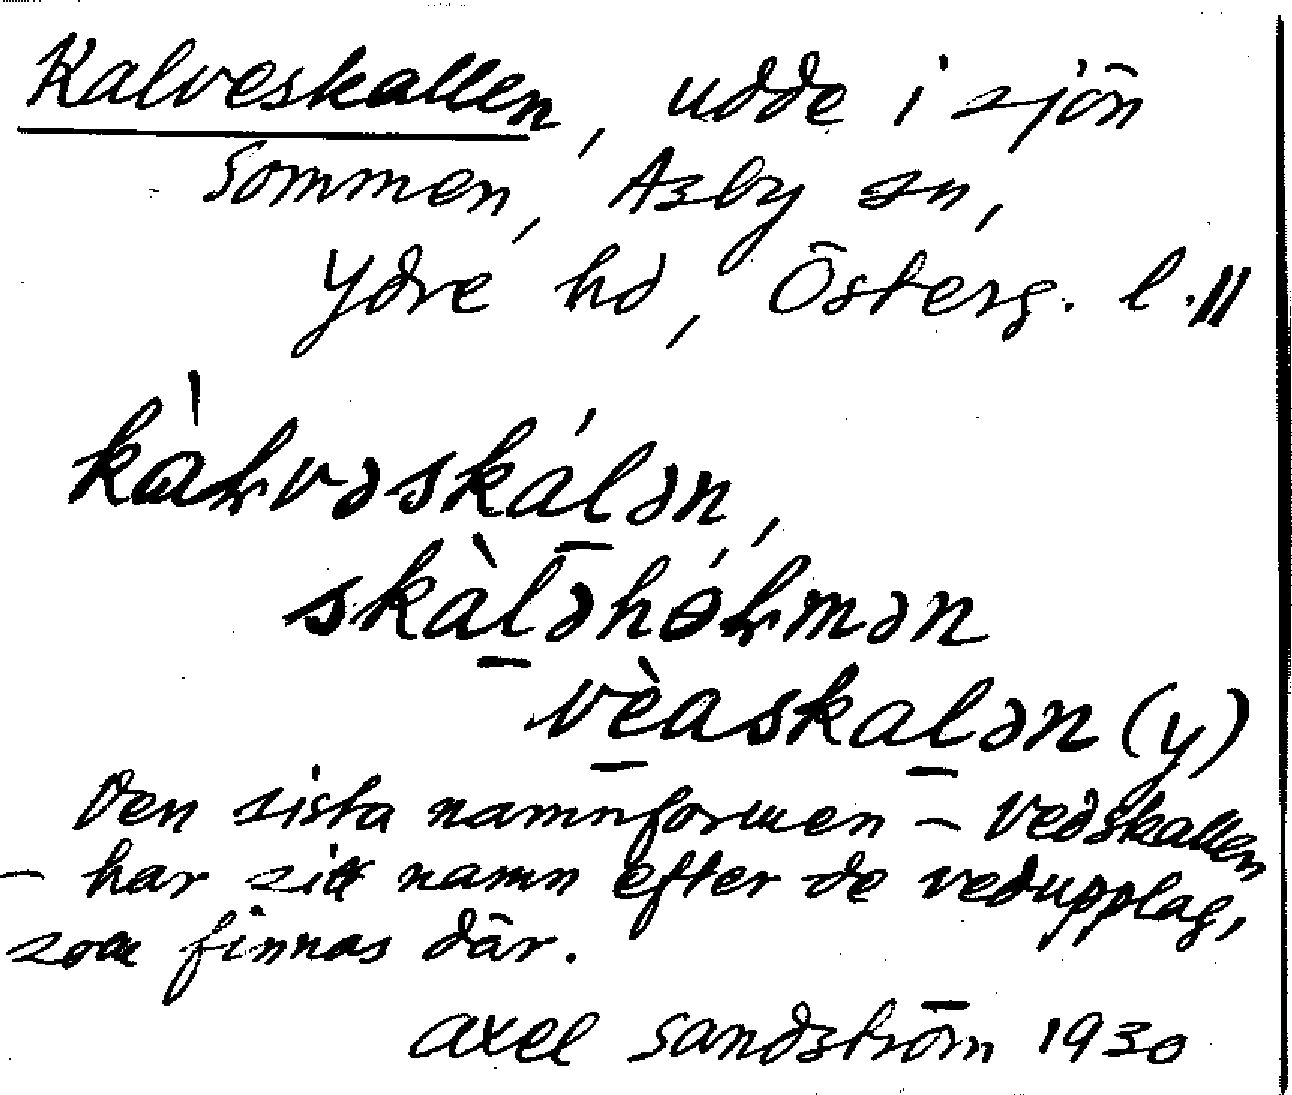 Kalveskallen, udde i sjön
Sommen, Asby sn,
Ydre hd, Österg. l.
kàɽvəskálən,
skàləhóɽmən
vèaskalən (y)
Den sista namnformen – Vedskallen
– har sitt namn efter de vedupplag,
som finnas där.
Axel Sandström 1930